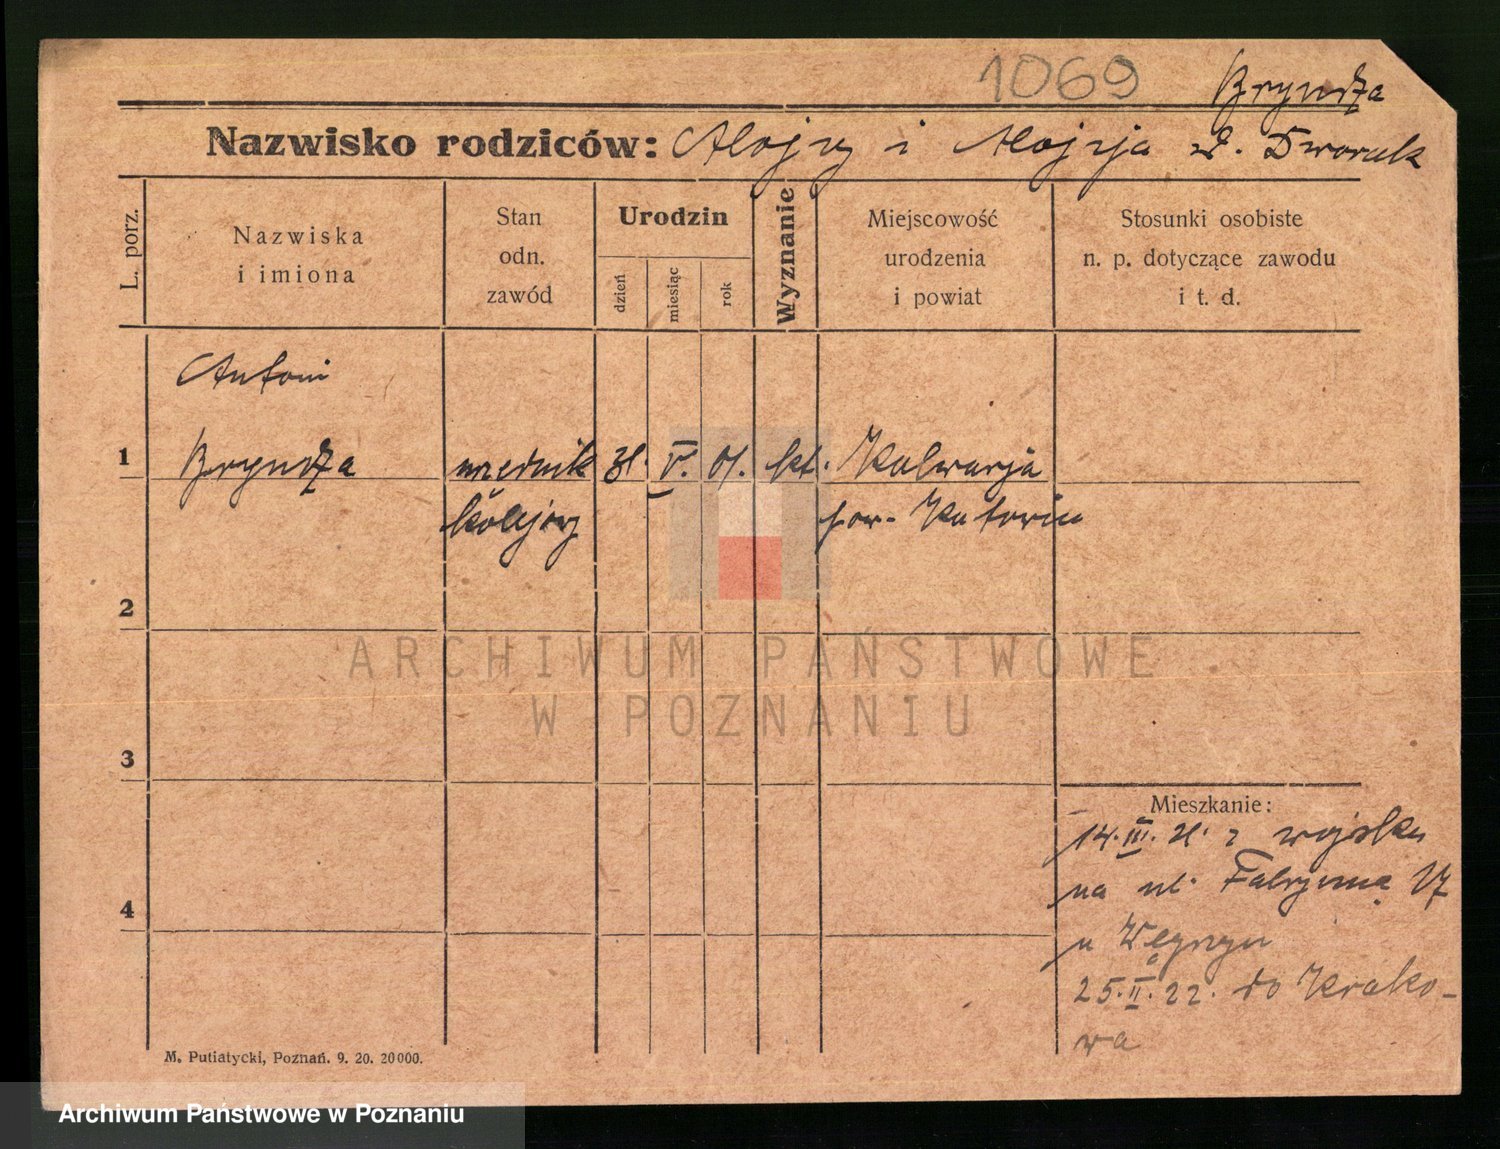 1069 Bryndza
Nazwisko rodziców: Alojzy i Alojzja z. Dworak
L. porz.
Nazwiska
i imiona
Stan
odn.
zawód
Urodzin
dzień
miesiąc
rok
Wyznanie
Miejscowość
urodzenia
i powiat
Stosunki osobiste
n. p. dotyczące zawodu
i t. d.
Antoni
1 Bryndza urzednik 31. V. 01. kt. Kalwarja
kolejowy pow. Katowice
2
3
Mieszkanie:
14. III. 21. z wojska
4 na ul. Fabryczną 17
u
25. II. 22. do Krako-
wa
M. Putiatycki, Poznań. 9. 20. 20000.
ARCHIWUM PAŃSTWOWE
W POZNANIU
Archiwum Państwowe w Poznaniu